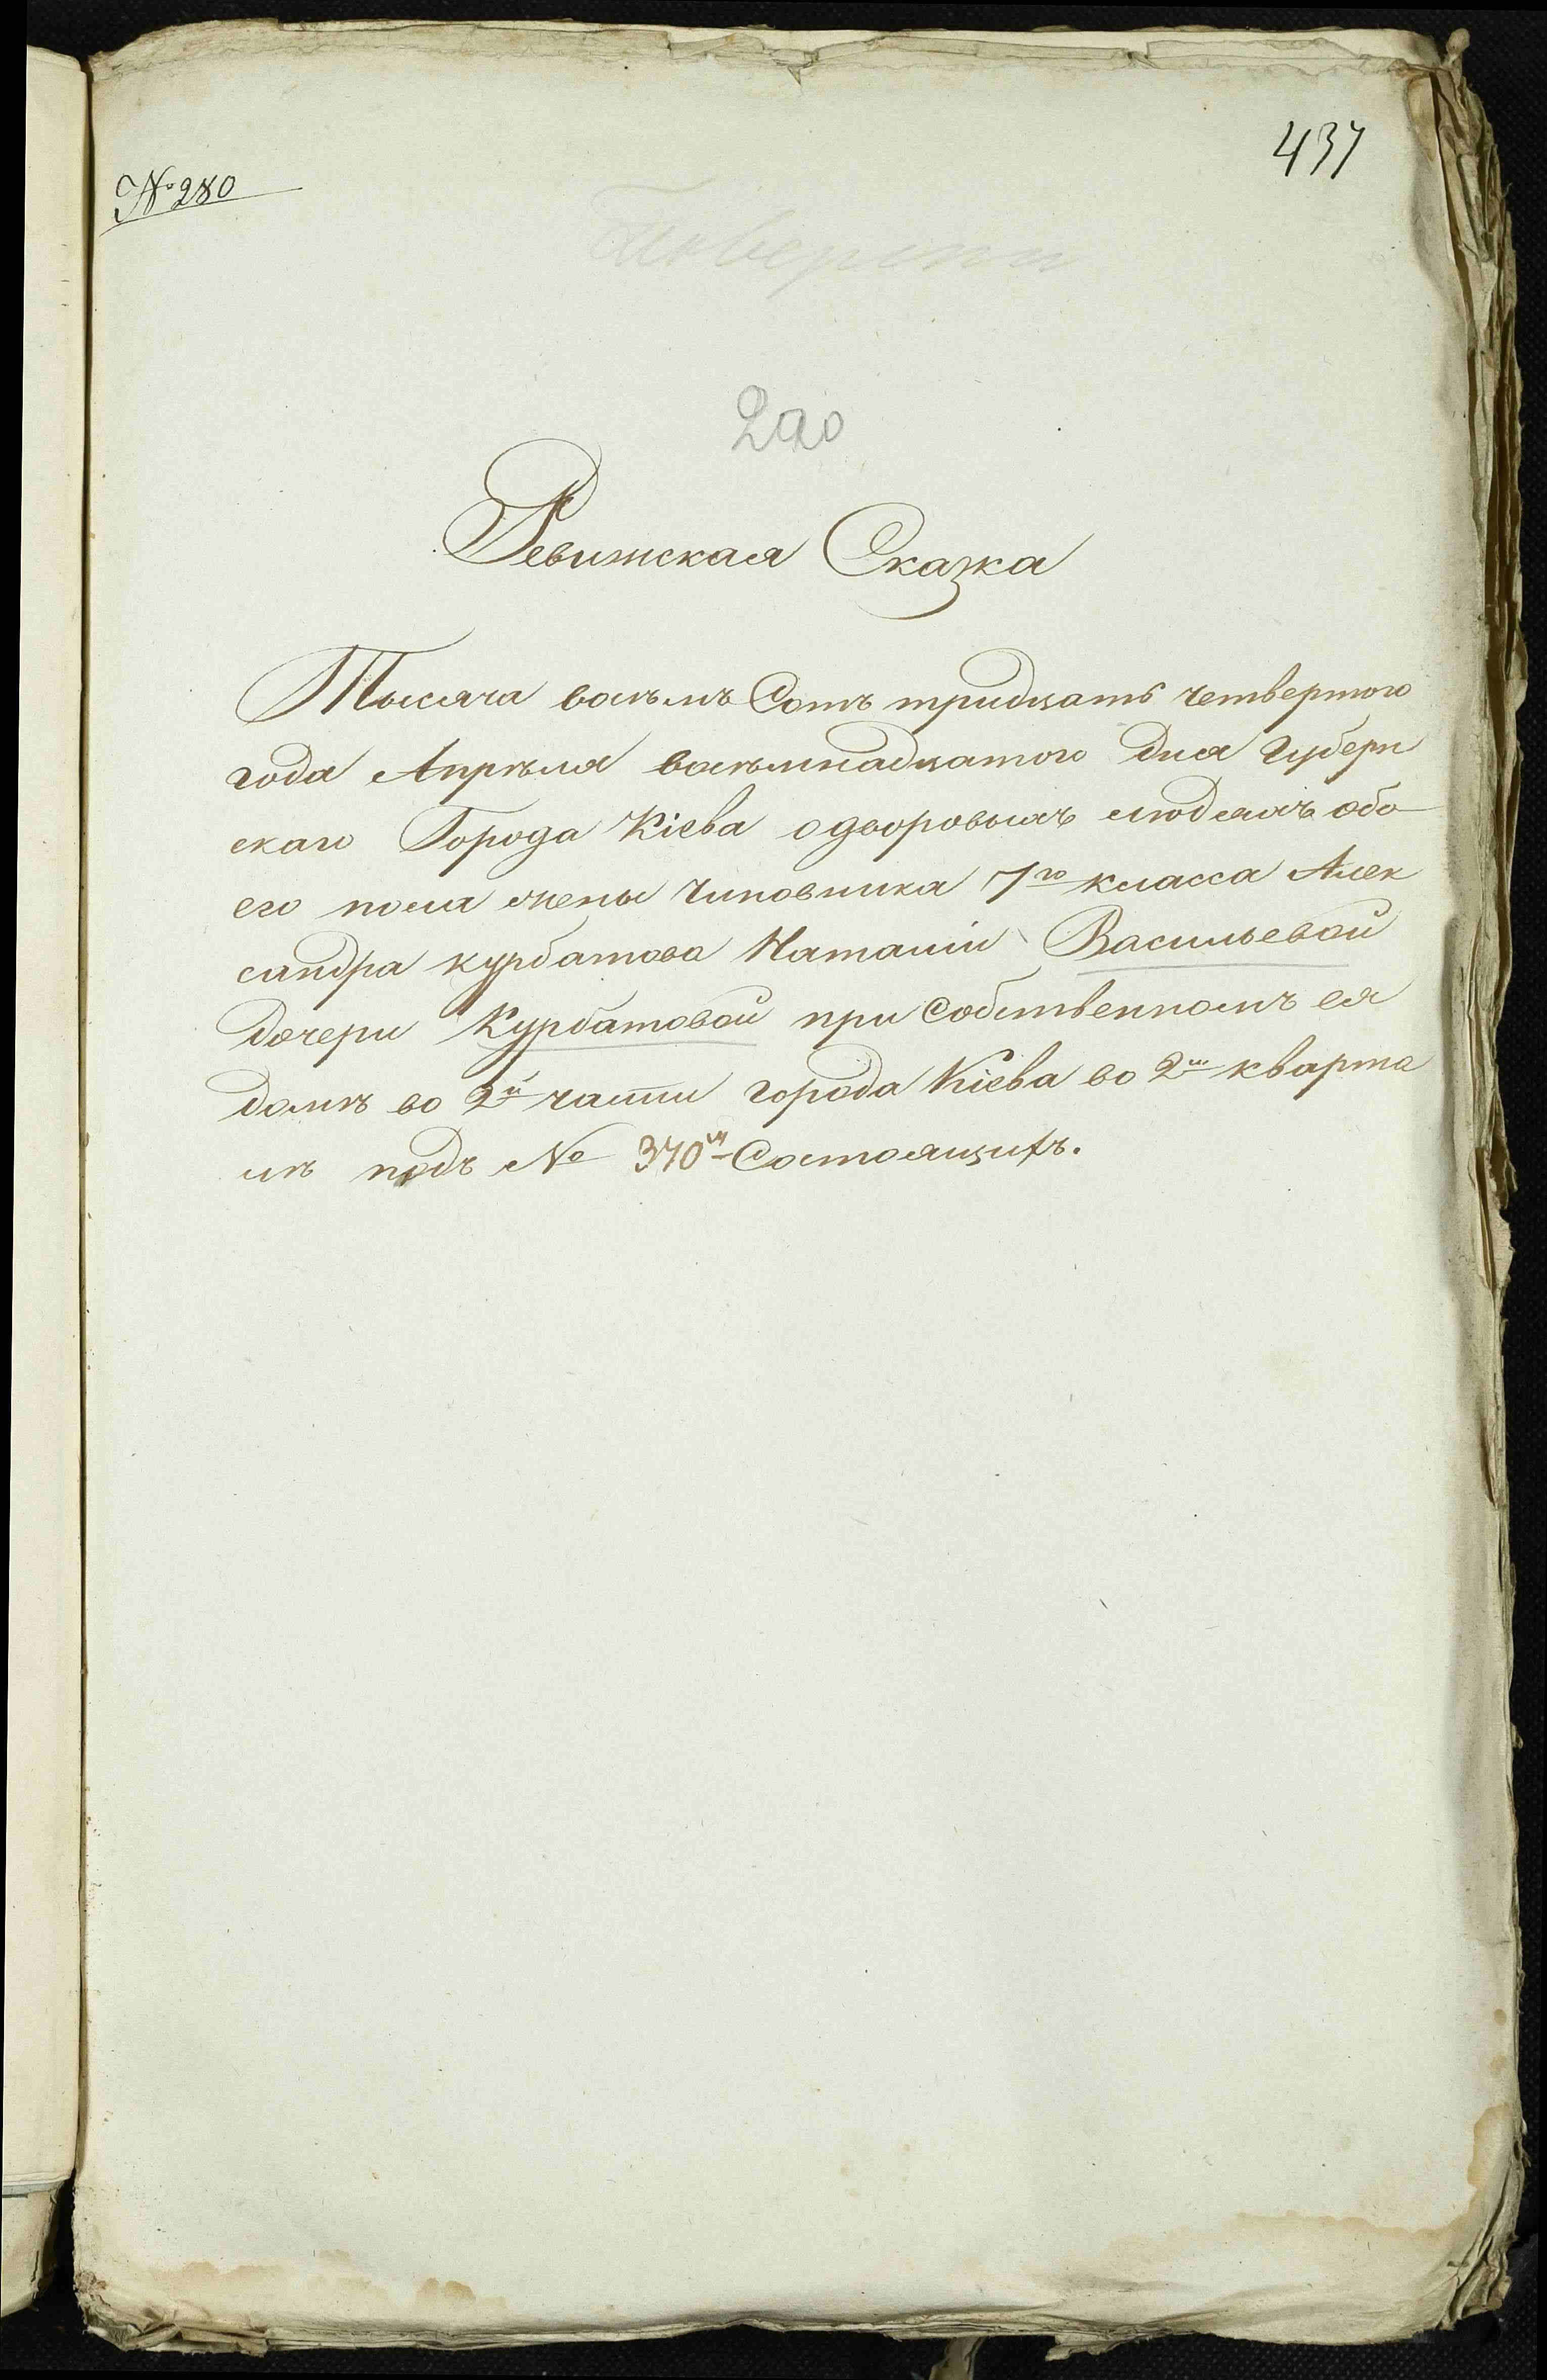 437
№ 280
Ревижская Сказка
Тысяча восѣмъ Сотъ тридцать четвертого
года Апрѣля восѣмнадцатого дня Губерн
скаго Города Кіева о дворовыхъ людяхъ обо
его пола жены Чиновника 7го класса Алек
сандра курбатова Наталіи Васильевой
дочери Курбатовой при Собственномъ ея
домѣ во 2й части города Кіева во 2м кварта
лѣ подъ № 370м Состоящихъ.